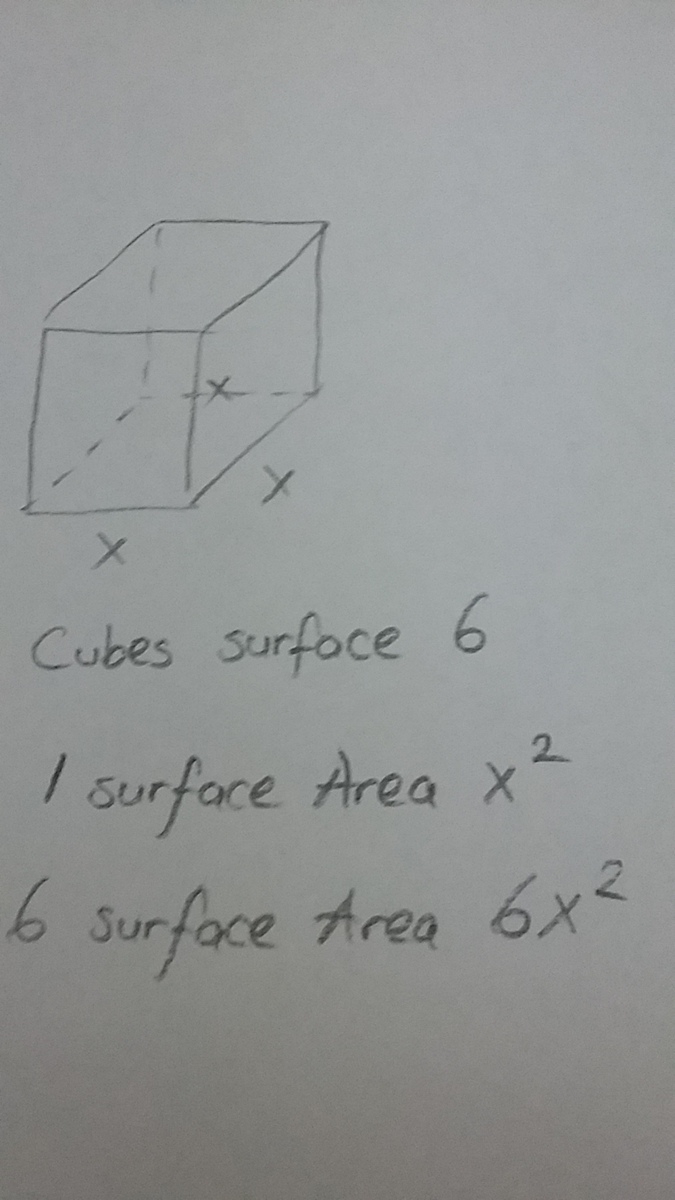 x
x
x
Cubes surface 6
1 surface Area x²
6 surface Area 6x²